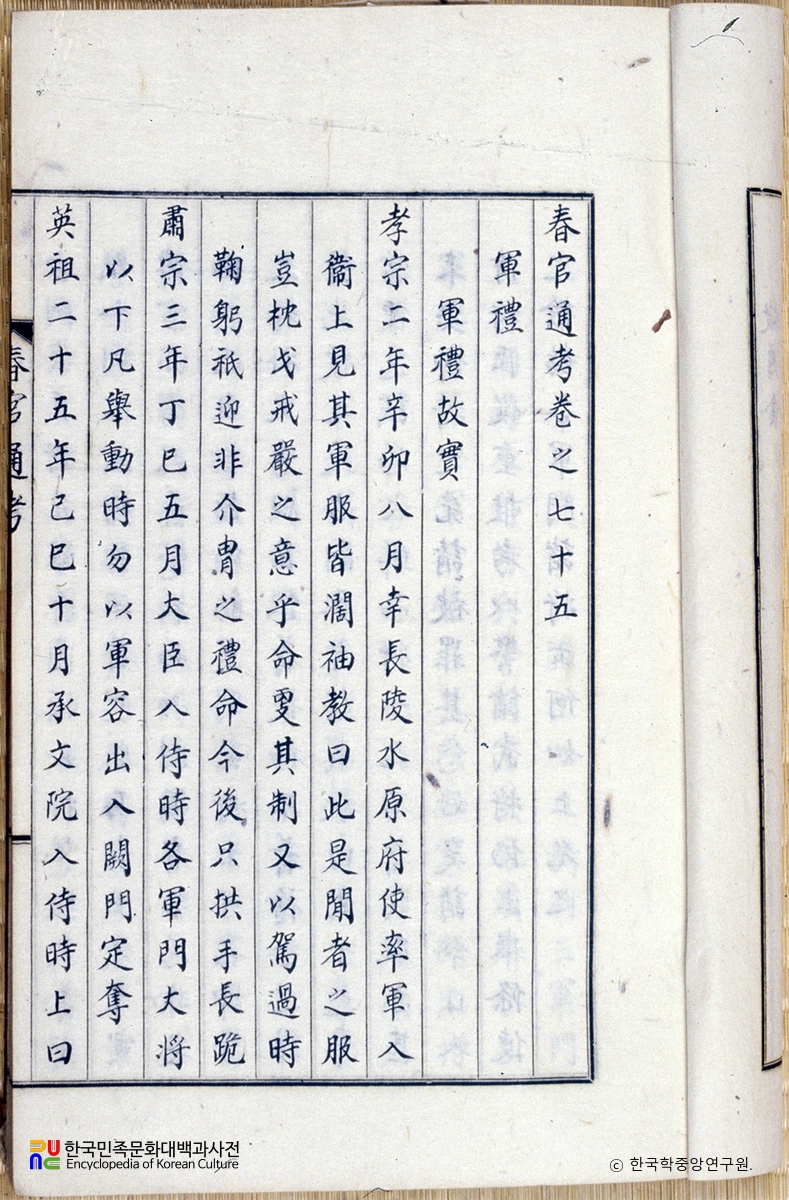 春官通考卷之七十五
軍禮
軍禮故實
孝宗二年辛卯八月幸長陵水原府使率軍入
衞上見其軍服皆濶袖敎曰此是閒者之服
豈枕戈戒嚴之意乎命更其制又以駕過時
鞠躬祇迎非介冑之禮命今後只拱手長跪
肅宗三年丁巳五月大臣入侍時各軍門大將
以下凡擧動時勿以軍容出入闕門定奪
英祖二十五年己巳十月承文院入侍時上曰
春官通考
한국민족문화대백과사전
Encyclopedia of Korean Culture
ⓒ 한국학중앙연구원.